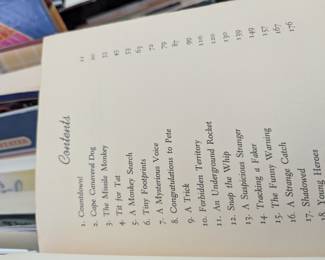 Contents
1. Countdown! 11
2. Cape Canaveral Dog 20
3. The Missile Monkey 33
4. Tit for Tat 45
5. A Monkey Search 53
6. Tiny Footprints 63
7. A Mysterious Voice 72
8. Congratulations to Pete 79
9. A Trick 87
10. Forbidden Territory 99
11. An Underground Rocket 110
12. Snap the Whip 120
13. A Suspicious Stranger 130
14. Tracking a Faker 139
15. The Funny Warning 149
16. A Strange Catch 157
17. Shadowed 167
18. Young Heroes 176